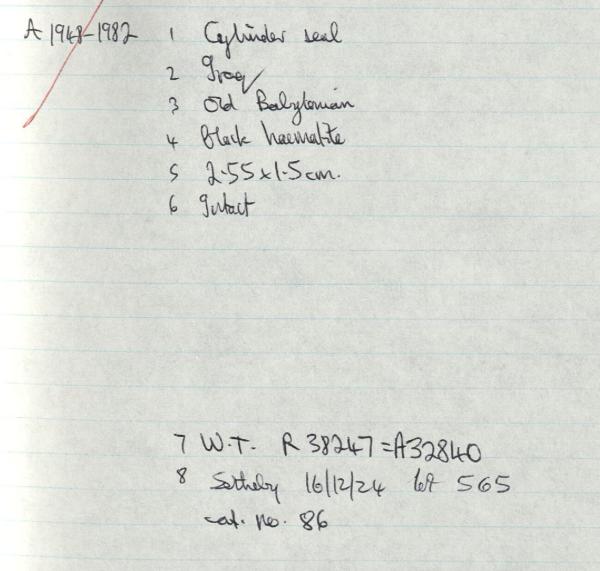 A 1948-1982 1 Cylinder seal
2 Iraq
3 Old Babylonian
4 Black haematite
5 2.55 x 1.5 cm.
6 Intact
7 W.T. R 38247 = A32840
8 Sotheby 16/12/24 lot 565
cat. no. 86